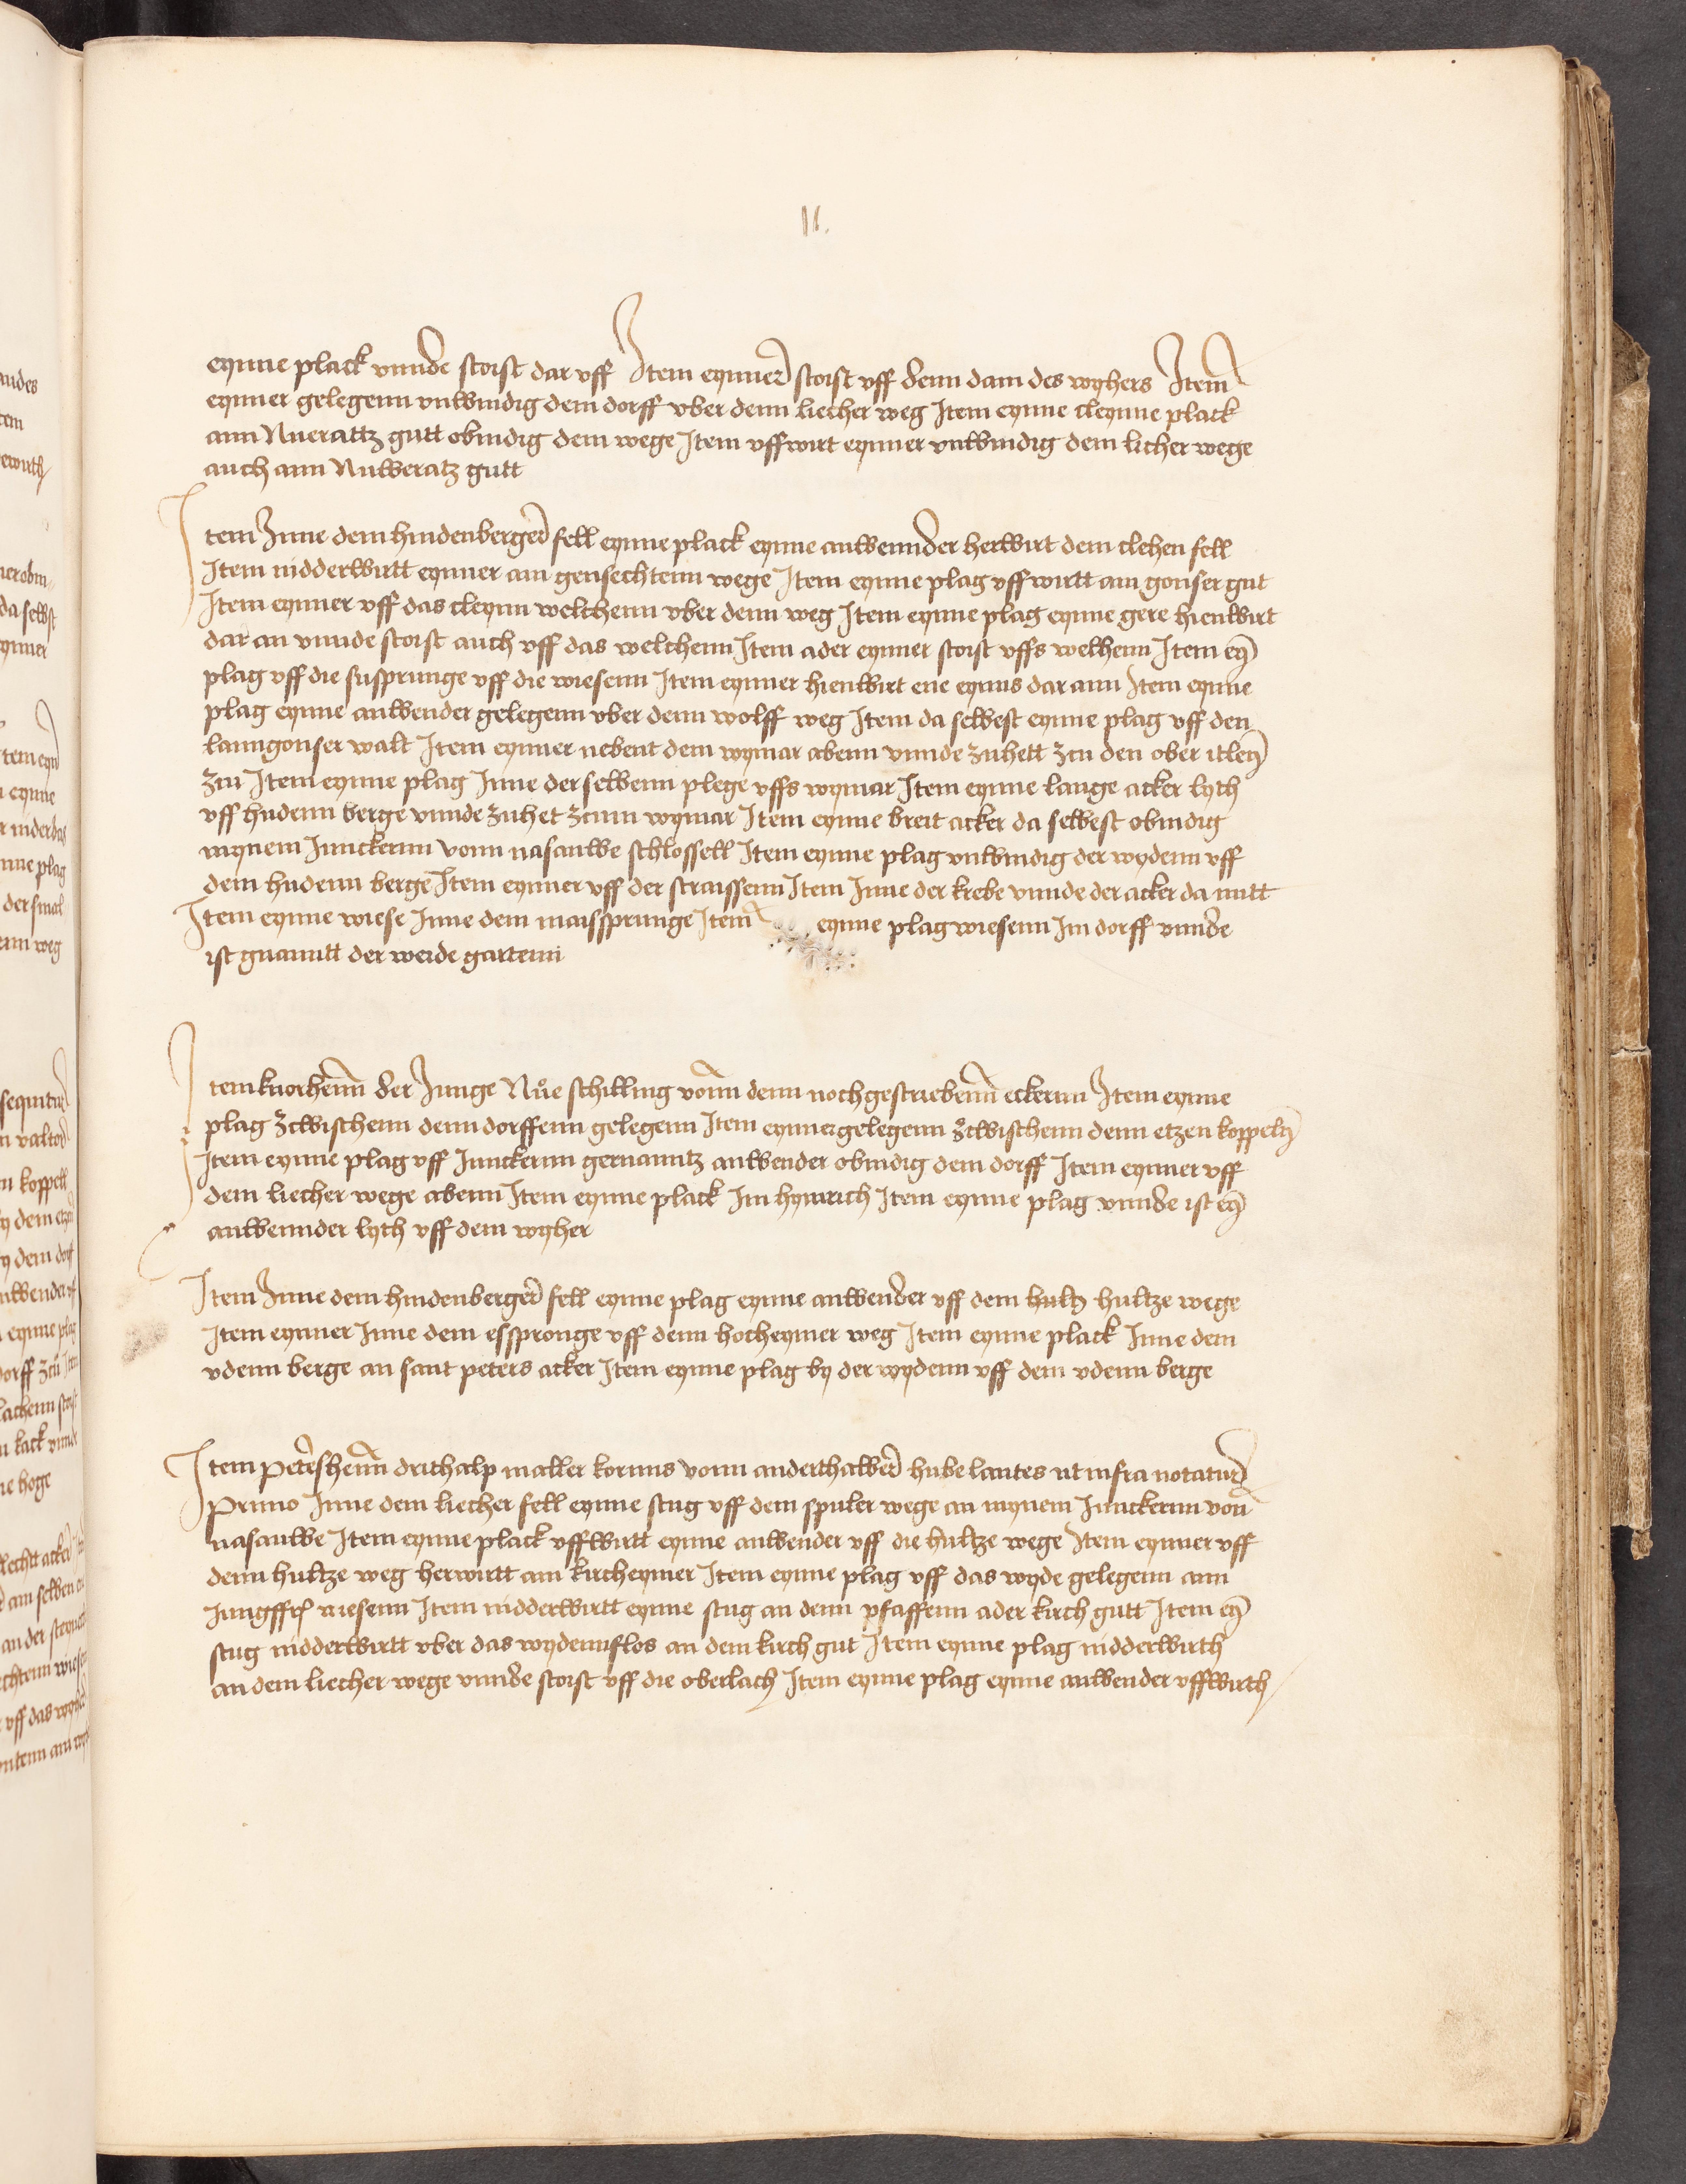 II.
eynne plack vnnde stoist dar vff Item eynner stoist vff denn dam des wyhers Item
eynner gelegenn vnwindig dem dorff vber denn liecher weg Item eynne cleynne plack
ann Nuerattz gutt obindig dem wege Item vffwirt eynner vnwindig dem licher wege
auch ann Nuweratz gutt
Item Inne dem hindenberger fell eynne plack eynne anwennder herwirt dem clehen fell
Item nidderwirtt eynner am gensechtenn wege Item eynne plag vffwirtt am gonser gut
Item eynner vff das cleynn welchenn vber denn weg Item eynne plag eynne gere hienwirt
dar an vnnde stoist auch vff das welchenn Item ader eynner stoist vffs welhenn Item ey
plag vff die susprunge vff die wiesenn Item eynner hienwirt ene eynns dar ann Item eynne
plag eynne anwender gelegenn vber denn wolff weg Item da selbest eynne plag vff den
lanngonser walt Item eynner nebent dem wymar abenn vnnde zuhett zcu den ober itley
zcu Item eynne plag Inne der selbenn plege vffs wymar Item eynne lange acker lyth
vff hudenn berge vnnde zuhet zcum wymar Item eynne breit acker da selbest obindig
mynem Junckernn vonn nasauwe schlossell Item eynne plag vnwindig der wydenn vff
dem hudenn berge Item eynner vff der straissenn Item Inne der krebe vnnde der acker da mitt
Item eynne wiese Inne dem maissprunge Item eynne plag wiesenn Im dorff vnnde
ist gnantt der weide gartenn
Item knorhenn der Junge Nue schilling vonn denn nochgestriebenn eckernn Item eynne
plag zcwischenn denn dorffenn gelegenn Item eynner gelegenn zcwischenn denn etzen koppely
Item eynne plag vff Junckernn gernanntz anwender obindig dem dorff Item eynner vff
dem liecher wege abenn Item eynne plack Im hynrich Item eynne plag vnnde ist ey
anwennder lyth vff dem wyher
Item Inne dem hindenberger fell eynne plag eynne anwender vff dem hultz hultze wege
Item eynner Inne dem esspronge vff denn hocheymer weg Item eynne plack Inne dem
vdenn berge an sant peters acker Item eynne plag by der wydenn vff dem vdenn berge
Item petershenn drithalp malter kornns vonn anderthalber hube lantes ut infra notatur
Primo Inne dem liecher fell eynne stug vff dem spuler wege an mynem Junckernn von
nasauwe Item eynne plack vffwirtt eynne anwender vff die hultze wege Item eynner vff
denn hultze weg herwirtt am kircheymer Item eynne plag vff das wyde gelegenn ann
Jungffr wiesenn Item nidderwirtt eynne stug an denn pfaffenn ader kirch gutt Item ey
stug nidderwirtt vber das wydennflos an dem kirch gut Item eynne plag nidderwirth
an dem liecher wege vnnde stoist vff die oberlach Item eynne plag eynne anwender vffwirth